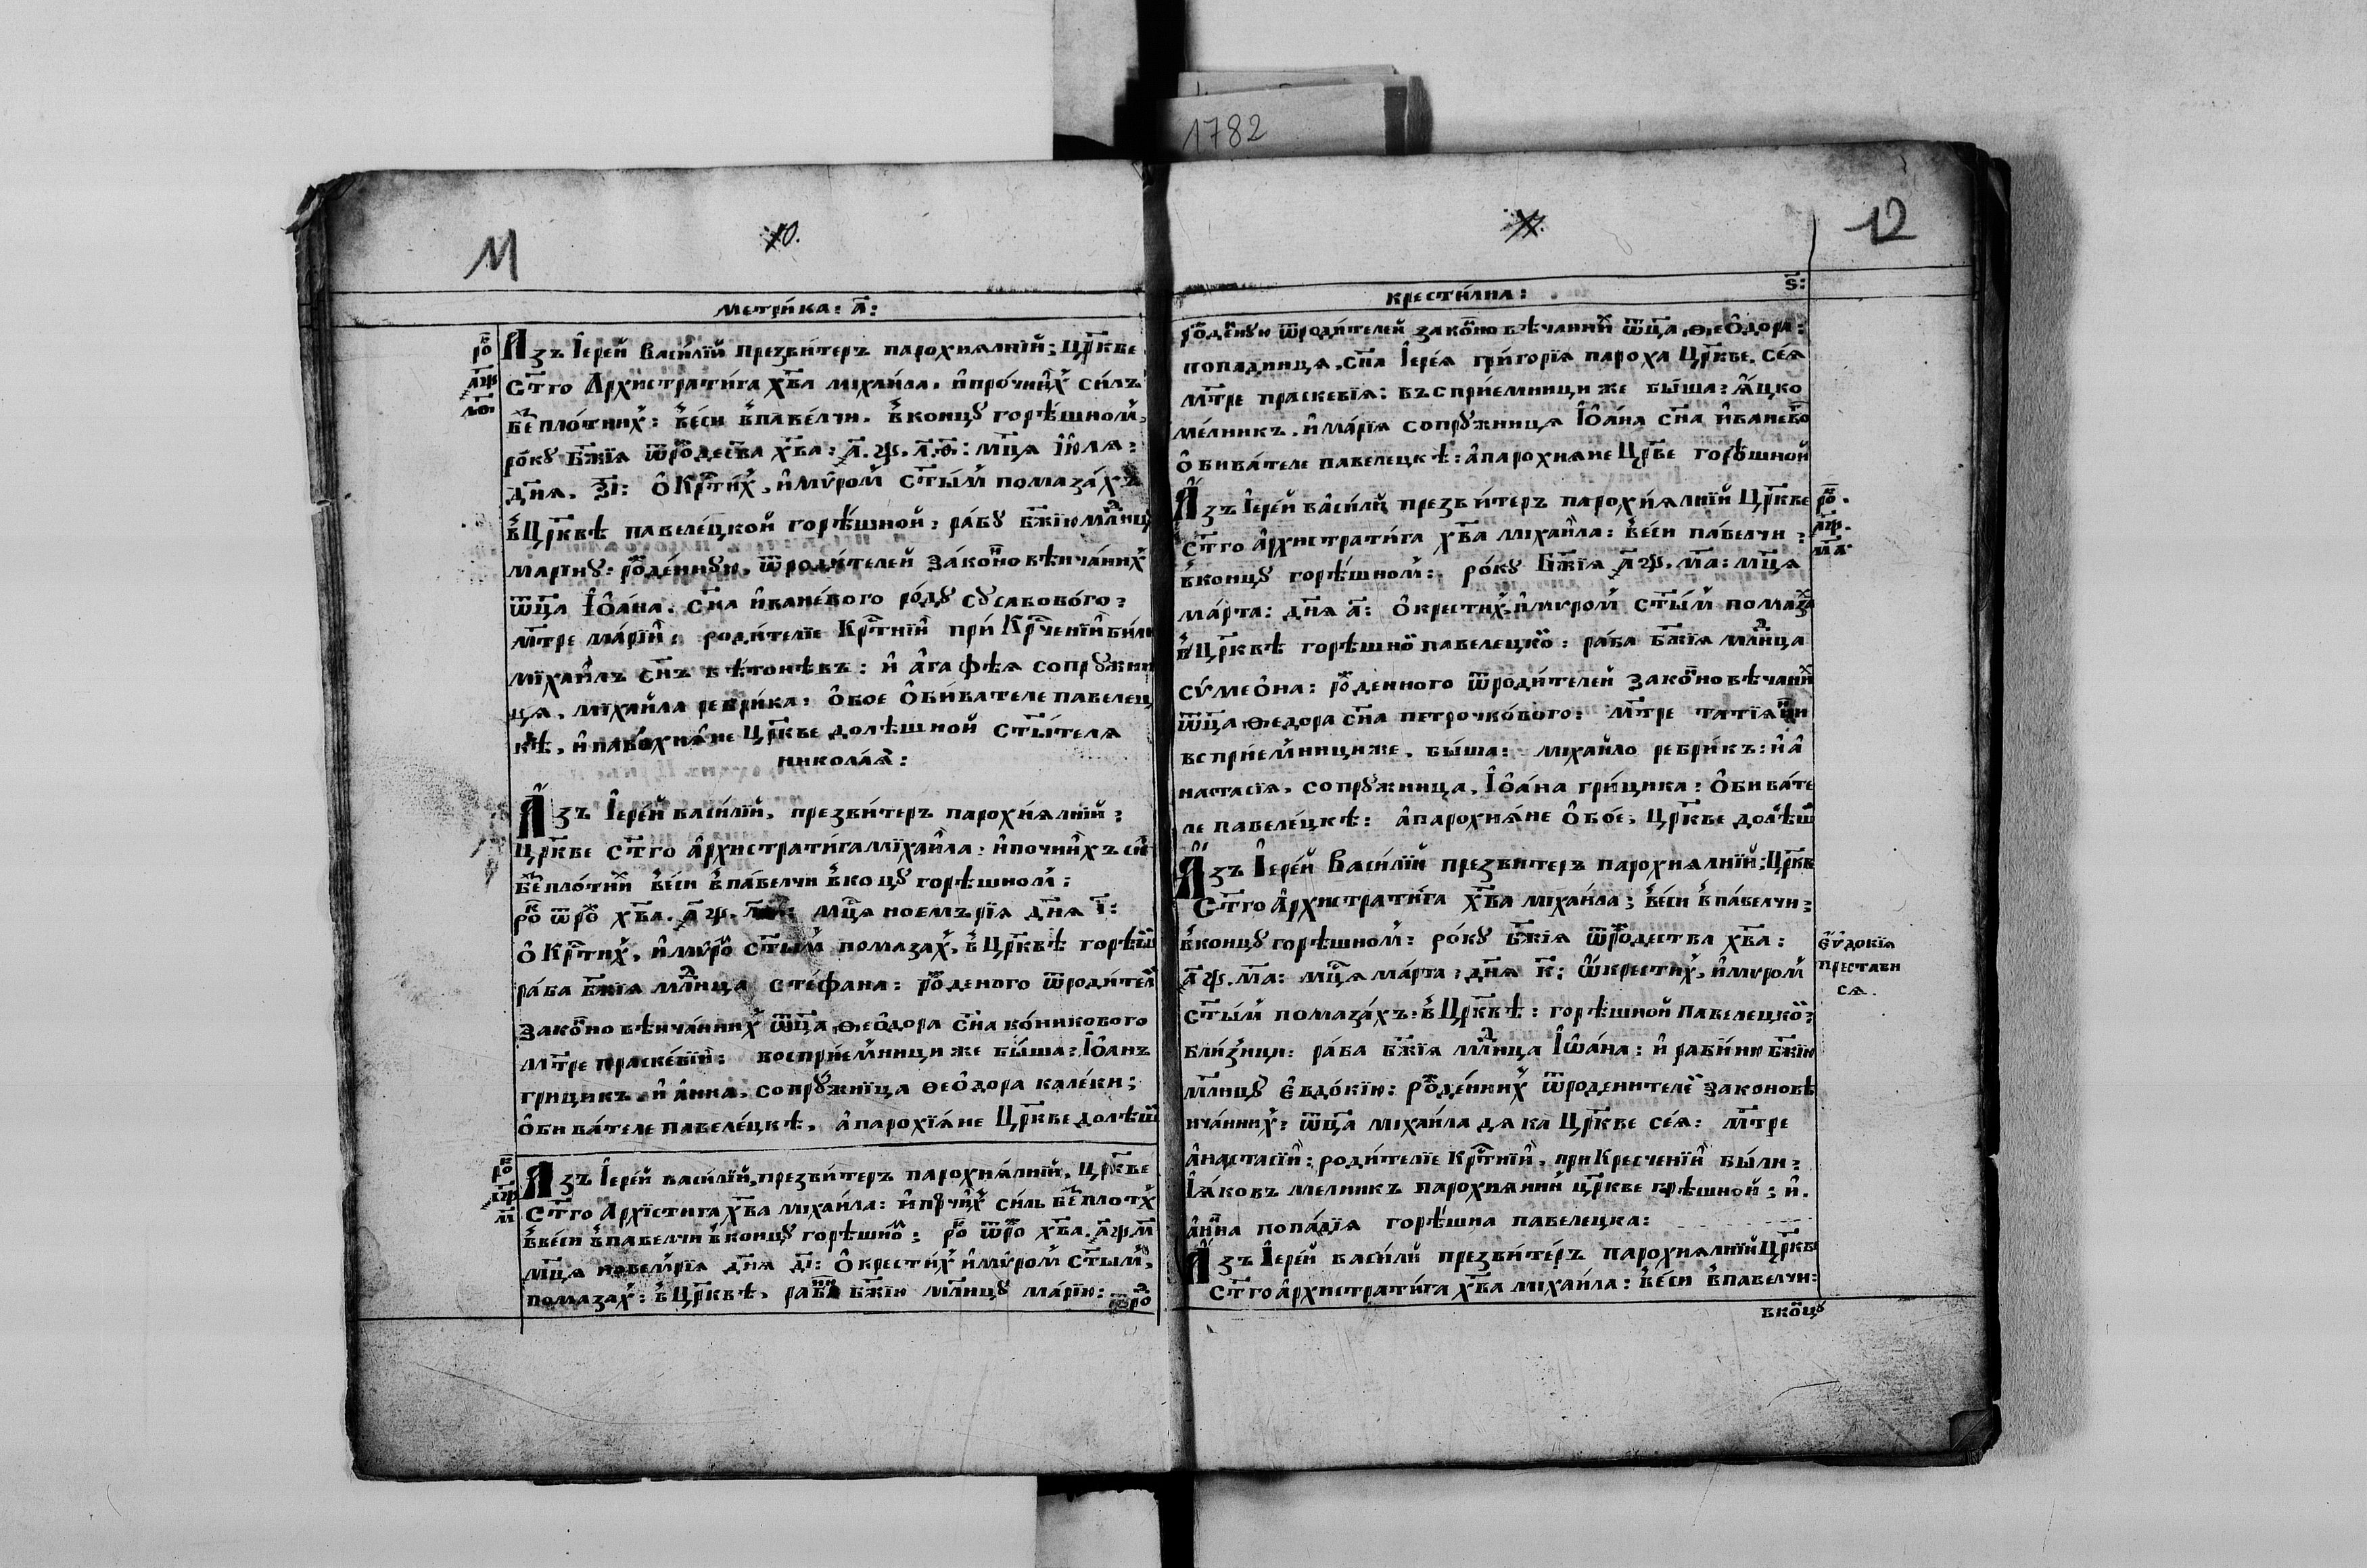 1782
11
10.
Метри́ка: а҃:
ро҃к
а҃ѱ
л҃ѳ
Азъ Іере́й Васи́лїй Презви́теръ парохиялнїй; Цр҃кве
Ст҃го Архистрати́га Хв҃а Міхаи́ла. и҆про́чиих̾ Си́лъ
Бе́плотних̾: ве́си в̾паве́лчи. в̾концꙋ горѣ́шном̾,
ро́кꙋ Бж҃їя ѿрождества Хв҃а: а҃.ѱ.л҃.ѳ҃: мц҃я Ї҆ю́ля:
дн҃я. з҃і: Ѻ҆Кр҃тих̾, и҆мѵ́ром̾ Ст҃ы́м̾ помаза́хъ
в̾Цр҃квѣ павеле́цкой горѣ́шной: ра́бꙋ бж҃їю мл҃дницꙋ
Марїнꙋ: ро́жде́ннꙋю, ѿроди́телей зако́нно вѣнча́них̾
ѿц҃а Іѻ҆а́на. сн҃а и҆ване́вого ро́дꙋ Сꙋсабово́го:
мт҃ре ма́рїи҆: роди́телїе Кр҃тнїи҆ при́ Кр҃щенїи҆ би́ли
Міхаи҆лъ сн҃ъ вѣтонѣвъ: и҆ а҆гафѣя сопрꙋжни
ця, міхаи҆ла ребри́ка: ѻ҆бое ѻ҆би́вателе павелец
кѣ, и҆парохия́не Цр҃кве долѣшной ст҃и́теля
никола́я:
Азъ Іере́й васи́лїй, презви́теръ парохи́ялнїй:
Цр҃кве ст҃го а҆рхистрати́га міхаи҆ла: и҆почни҆хъ си́л
бе҃плотни ве́си в̾па́велчи в̾коцꙋ горѣшном̾:
ро҃к ѿро҃ж хв҃а. а҃ѱ. мц҃я ноемърїя дн҃я і҃:
ѻ҆Кр҃тих̾, и҆мѵ́ро ст҃ым̾ помазах̾, в̾Цр҃квѣ горѣш
ра́ба бж҃їя мл҃дница Сте́фана: ро́жденого ѿроди́тел
зако́нно вѣнча́нних̾ ѿц҃а, Ѳеѻ҆дора сн҃а ко́никового
мт҃ре праске́вїи҆: воспрїе́мници же бы́ша: Іѻ҆анъ
грицикъ. и҆ а҆нна. сопрꙋ́жнїца Ѳеѻ҆дора кале́ки;
ѻ҆бива́теле павеле́цкѣ, а҆парохїя́не Цр҃кве долѣш
ро҃к
а҃ѱ
м҃
Азъ Іере́й васи́лїй, презви́теръ парохия́лнїй, Цр҃кве
Ст҃го Архїстига Хв҃а міхаи́ла: и҆прчи҆х̾ силъ бе҃плотх̾
в̾веси в̾павелчи в̾концꙋ горѣшно̾м; ро҃к ѿро҃ж хв҃а. а҃ѱм҃
мц҃я новем̾рїя дн҃я д҃і: ѻ҆крести́х̾ и҆мѵ́ром̾ ст҃ым̾,
помазах̾: в̾Цр҃квѣ, рабн бж҃їю мл҃ницꙋ ма́рїю:
ѿро҃ж
12
11.
Крести́лна:
ѕ҃:
ро́жденнꙋю ѿроди́телей зако́нно вѣчаннїй ѿц҃а, Ѳеѻ҆дора:
попадинця, сн҃а Іере́я григорїя пароха Цр҃кве. се́я
мт҃ре праскевїя: въспрїемници же бы́ша: я҆цко
ме́лникъ. и҆ма́рїя сопрꙋжниця Іѻ҆а́на сн҃а и҆ваневго
ѻ҆бива́теле павелецкѣ: а҆парохияне Цр҃ве горѣшной
Азъ Іере́й ва҆си́лїй презви́теръ парохи́ялнїй Цр҃кве
ст҃го а҆рхистрати́га хв҃а міхаи҆ла: ве́си па́велчи:
в̾концꙋ горѣ́шном̾: ро́кꙋ Бж҃їя а҃ѱ.м҃а: мц҃я
ро҃к.
а҃ѱ.
м҃а
ма́рта: дн҃я а҃: ѻ҆крестих̾, и҆мѵром̾ ст҃ы́м̾ помаза
в̾Цр҃квѣ горѣшно̾ павелецко̾: ра́ба бж҃їя мл҃дница
сѵмеѻ҆на: ро́жденного ѿроди́телей зако́нно вѣчани
ѿц҃а Ѳедора сн҃а петрочко́вого: мт҃ре татїяни
вспрїе́мници же, бы́ша: міхаи҆ло ребри́къ: и҆ а҆
настасїя, сопрꙋжница, Іѻ҆а́на гри́цика: ѻ҆бива́те
ле павеле́цкѣ: а҆парохия́не ѻ҆бо́е, Цр҃кве долѣш
Азъ Іере́й Васи́лїй презвитеръ парохиялнїй; Цр҃кв
Ст҃го а҆рхистрати́га хв҃а міхаи́ла; ве́си в̾па́велчи;
в̾концꙋ горѣшном̾: ро́кꙋ бж҃їя ѿрождества хв҃а:
а҃ѱ.м҃а: мц҃я ма́рта: дн҃я к҃: ѡ҆крестих̾, и҆мѵром̾
е҆ѵ́докїя
престави
ся.
ст҃ы́м̾ помаза́хъ: в̾Цр҃квѣ: горѣшной павелецко̾:
бли́зници: ра́ба бж҃їя мл҃дница Іѡ҆а́на: и҆ раби́ню бж҃їю
мл҃ницꙋ е҆вдо́кїю: ро́жде́нних̾ ѿроденителе̾ законовѣ
нча́нних̾: ѿц҃а міхаи́ла дяка Цр҃кве се́я: мт҃ре
а҆настасїи҆: роди́телїе Кр҃тнїи҆, при Кресченїи҆ бы́ли:
Іа́ковъ мелникъ парохиянин цр҃кве грѣшной; и҆.
а҆нна попа́дїя горѣ́шна павелецка:
Азъ Іере́й васи́лїй презви́те́ръ парохиялнїй Цр҃кве
ст҃го а҆рхистрати́га хв҃а міхаи́ла: ве́си в̾павелчи:
вко̾цꙋ